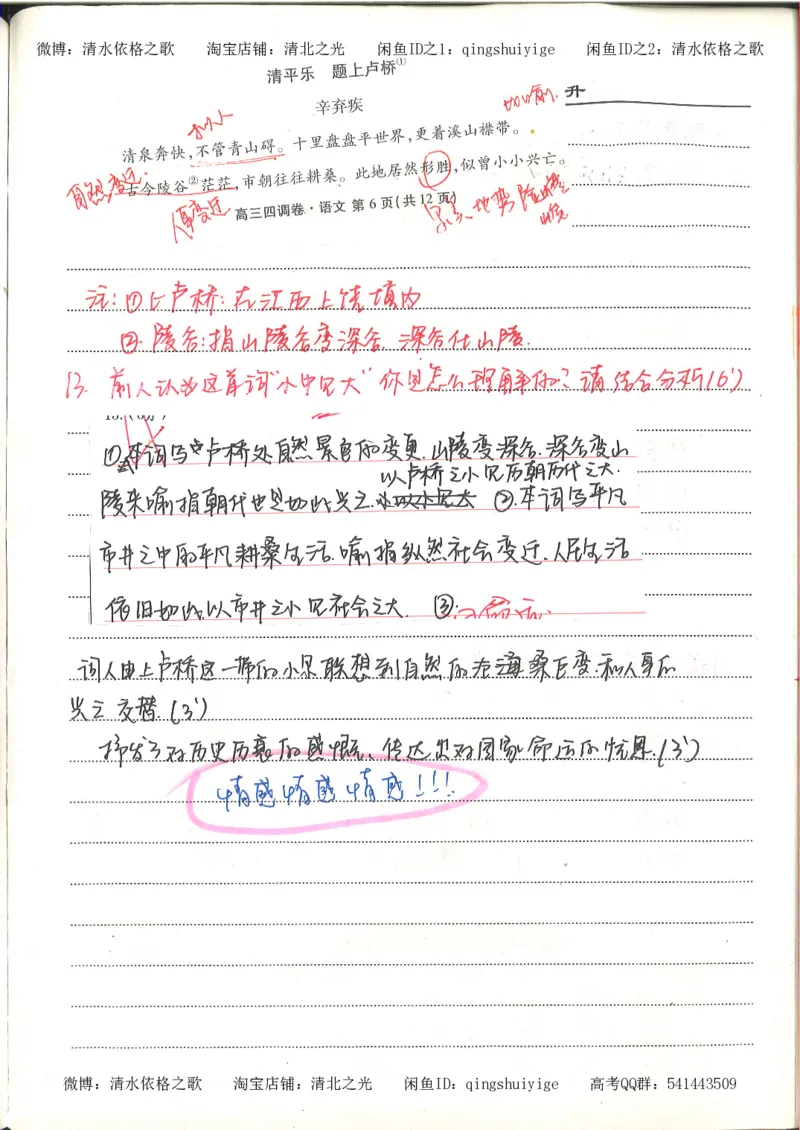 微博：清水依格之歌 淘宝店铺：清北之光 闲鱼ID之1：qingshuiyige 闲鱼ID之2：清水依格之歌
清平乐 题上卢桥①
辛弃疾
升
比喻.
拟人
清泉奔快，不管青山碍。十里盘盘平世界，更着溪山襟带。
自然变迁.
古今陵谷②茫茫，市朝往往耕桑。此地居然形胜，似曾小小兴亡。
人事变迁
高三四调卷·语文 第6页(共12页)
注：①上卢桥：在江西上饶境内
②.陵谷：指山陵谷变深谷.深谷化山陵.
13. 前人认为这首词“小中见大”你是怎么理解的？请结合分析(6')
①本词写上卢桥处自然景色的变更.山陵变深谷.深谷变山
以卢桥之小见历朝历代之大.
陵来喻指朝代也是如此兴亡. ②.本词写平凡
市井之中的平凡耕桑生活.喻指纵然社会变迁.人民生活
依旧如此.以市井之小见社会之大. ③.
词人由上卢桥这一带的小景联想到自然的沧海桑田巨变.和人事的
兴亡交替.(3')
抒发了对历史历衰的感慨、传达出对国家命运的忧思.(3')
情感情感情感!!!
微博：清水依格之歌 淘宝店铺：清北之光 闲鱼ID：qingshuiyige 高考QQ群：541443509